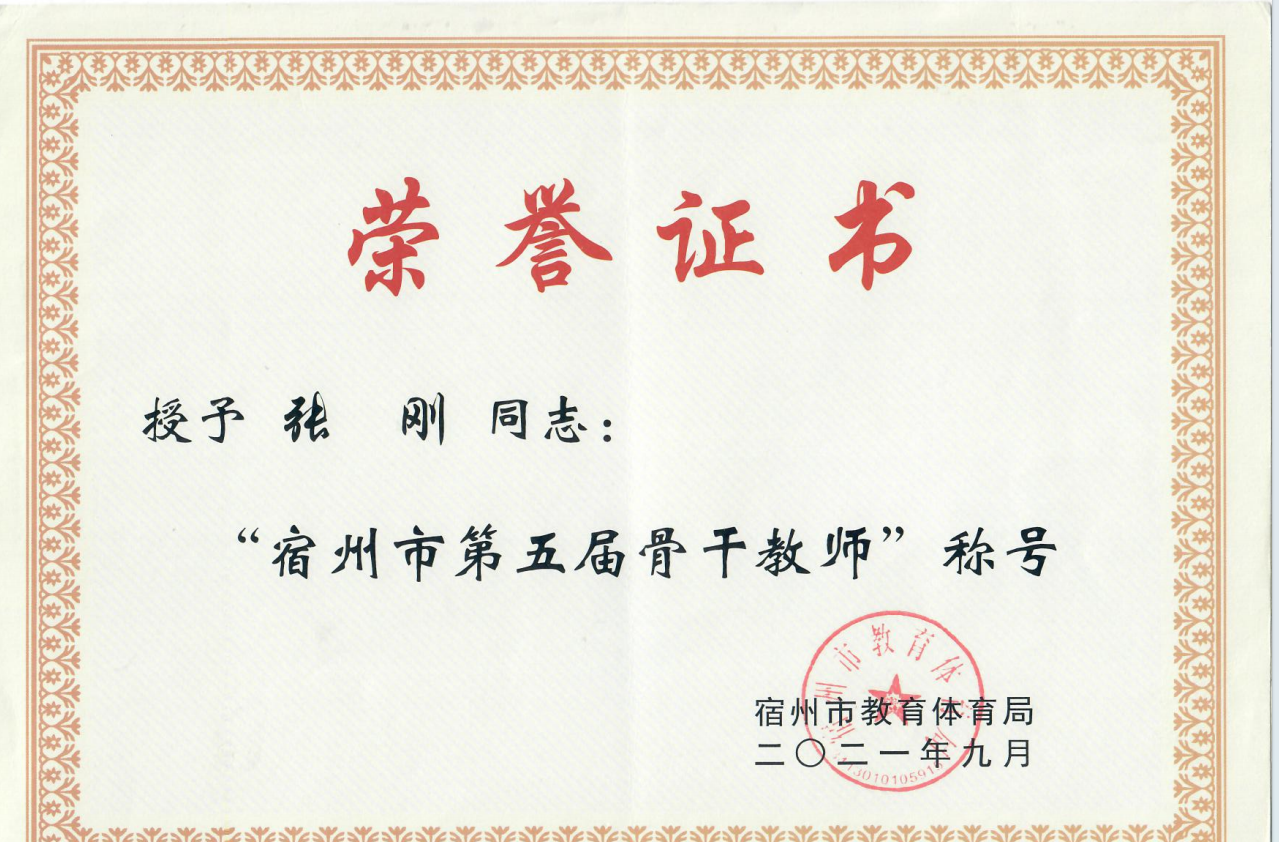 荣誉证书
授予 张 刚 同志：
“宿州市第五届骨干教师”称号
宿州市教育体育局
宿州市教育体育局
二〇二一年九月